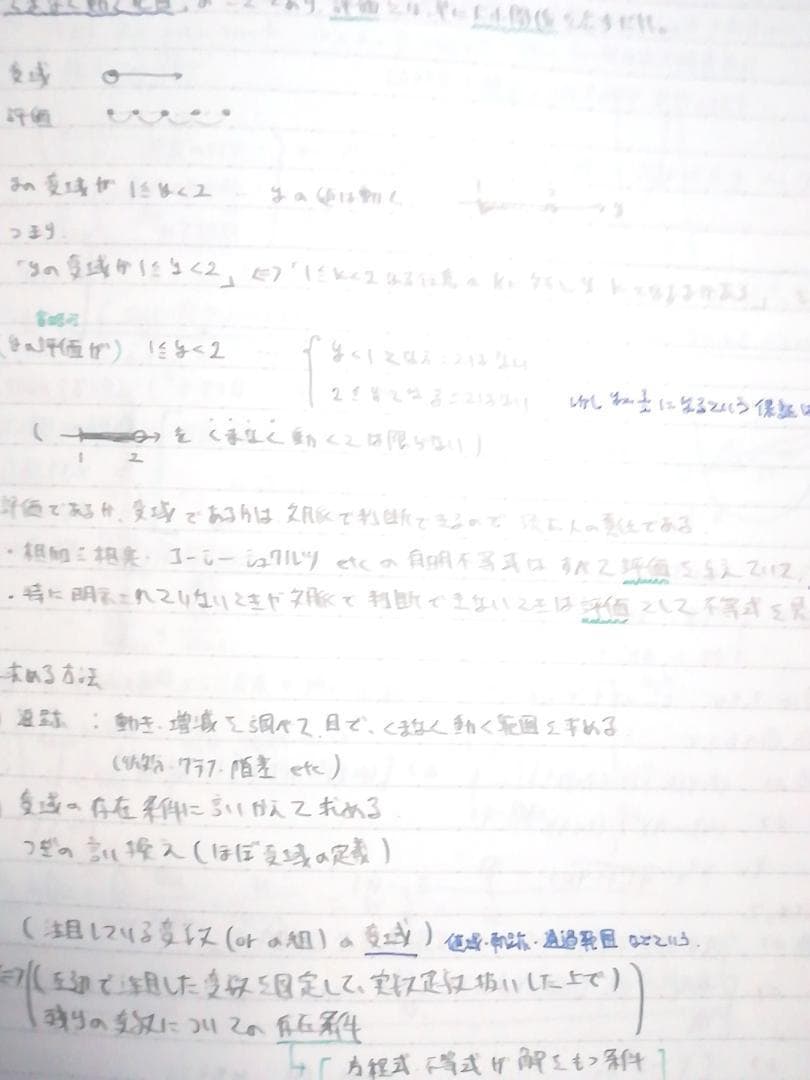 くまなく動く範囲, 評価とは, 単に大小関係を示すだけ。
変域
評価
yの変域が 1≦y<2 yの値は動く
1 2 y
つまり
「yの変域が1≦y<2」⇔「1≦k<2なる任意のkに対してy=kとなるときがある」
(yの評価が) 1≦y<2
y<1となることはない
2≦yとなることはない
しかしy=3/2になるという保証は
( 1 2 をくまなく動くとは限らない)
評価であるか、変域であるかは文脈で判断できるので読む人の責任である
・相加≧相乗・コーシーシュワルツ etcの自明不等式はすべて評価を与えていて、
・特に明示されていないときや文脈で判断できないときは評価として不等式を
求める方法
追跡:動き・増減を調べて、目で、くまなく動く範囲を求める
(微分・グラフ・階差 etc)
変域の存在条件に言いかえて求める
つぎの言い換え(ほぼ変域の定義)
(注目している変数(orの組)の変域) 値域・軌跡・通過範囲 などという.
⇔((左辺で注目した変数を固定して、実数定数扱いした上で)
残りの変数についての存在条件)
→「方程式、不等式が解をもつ条件」